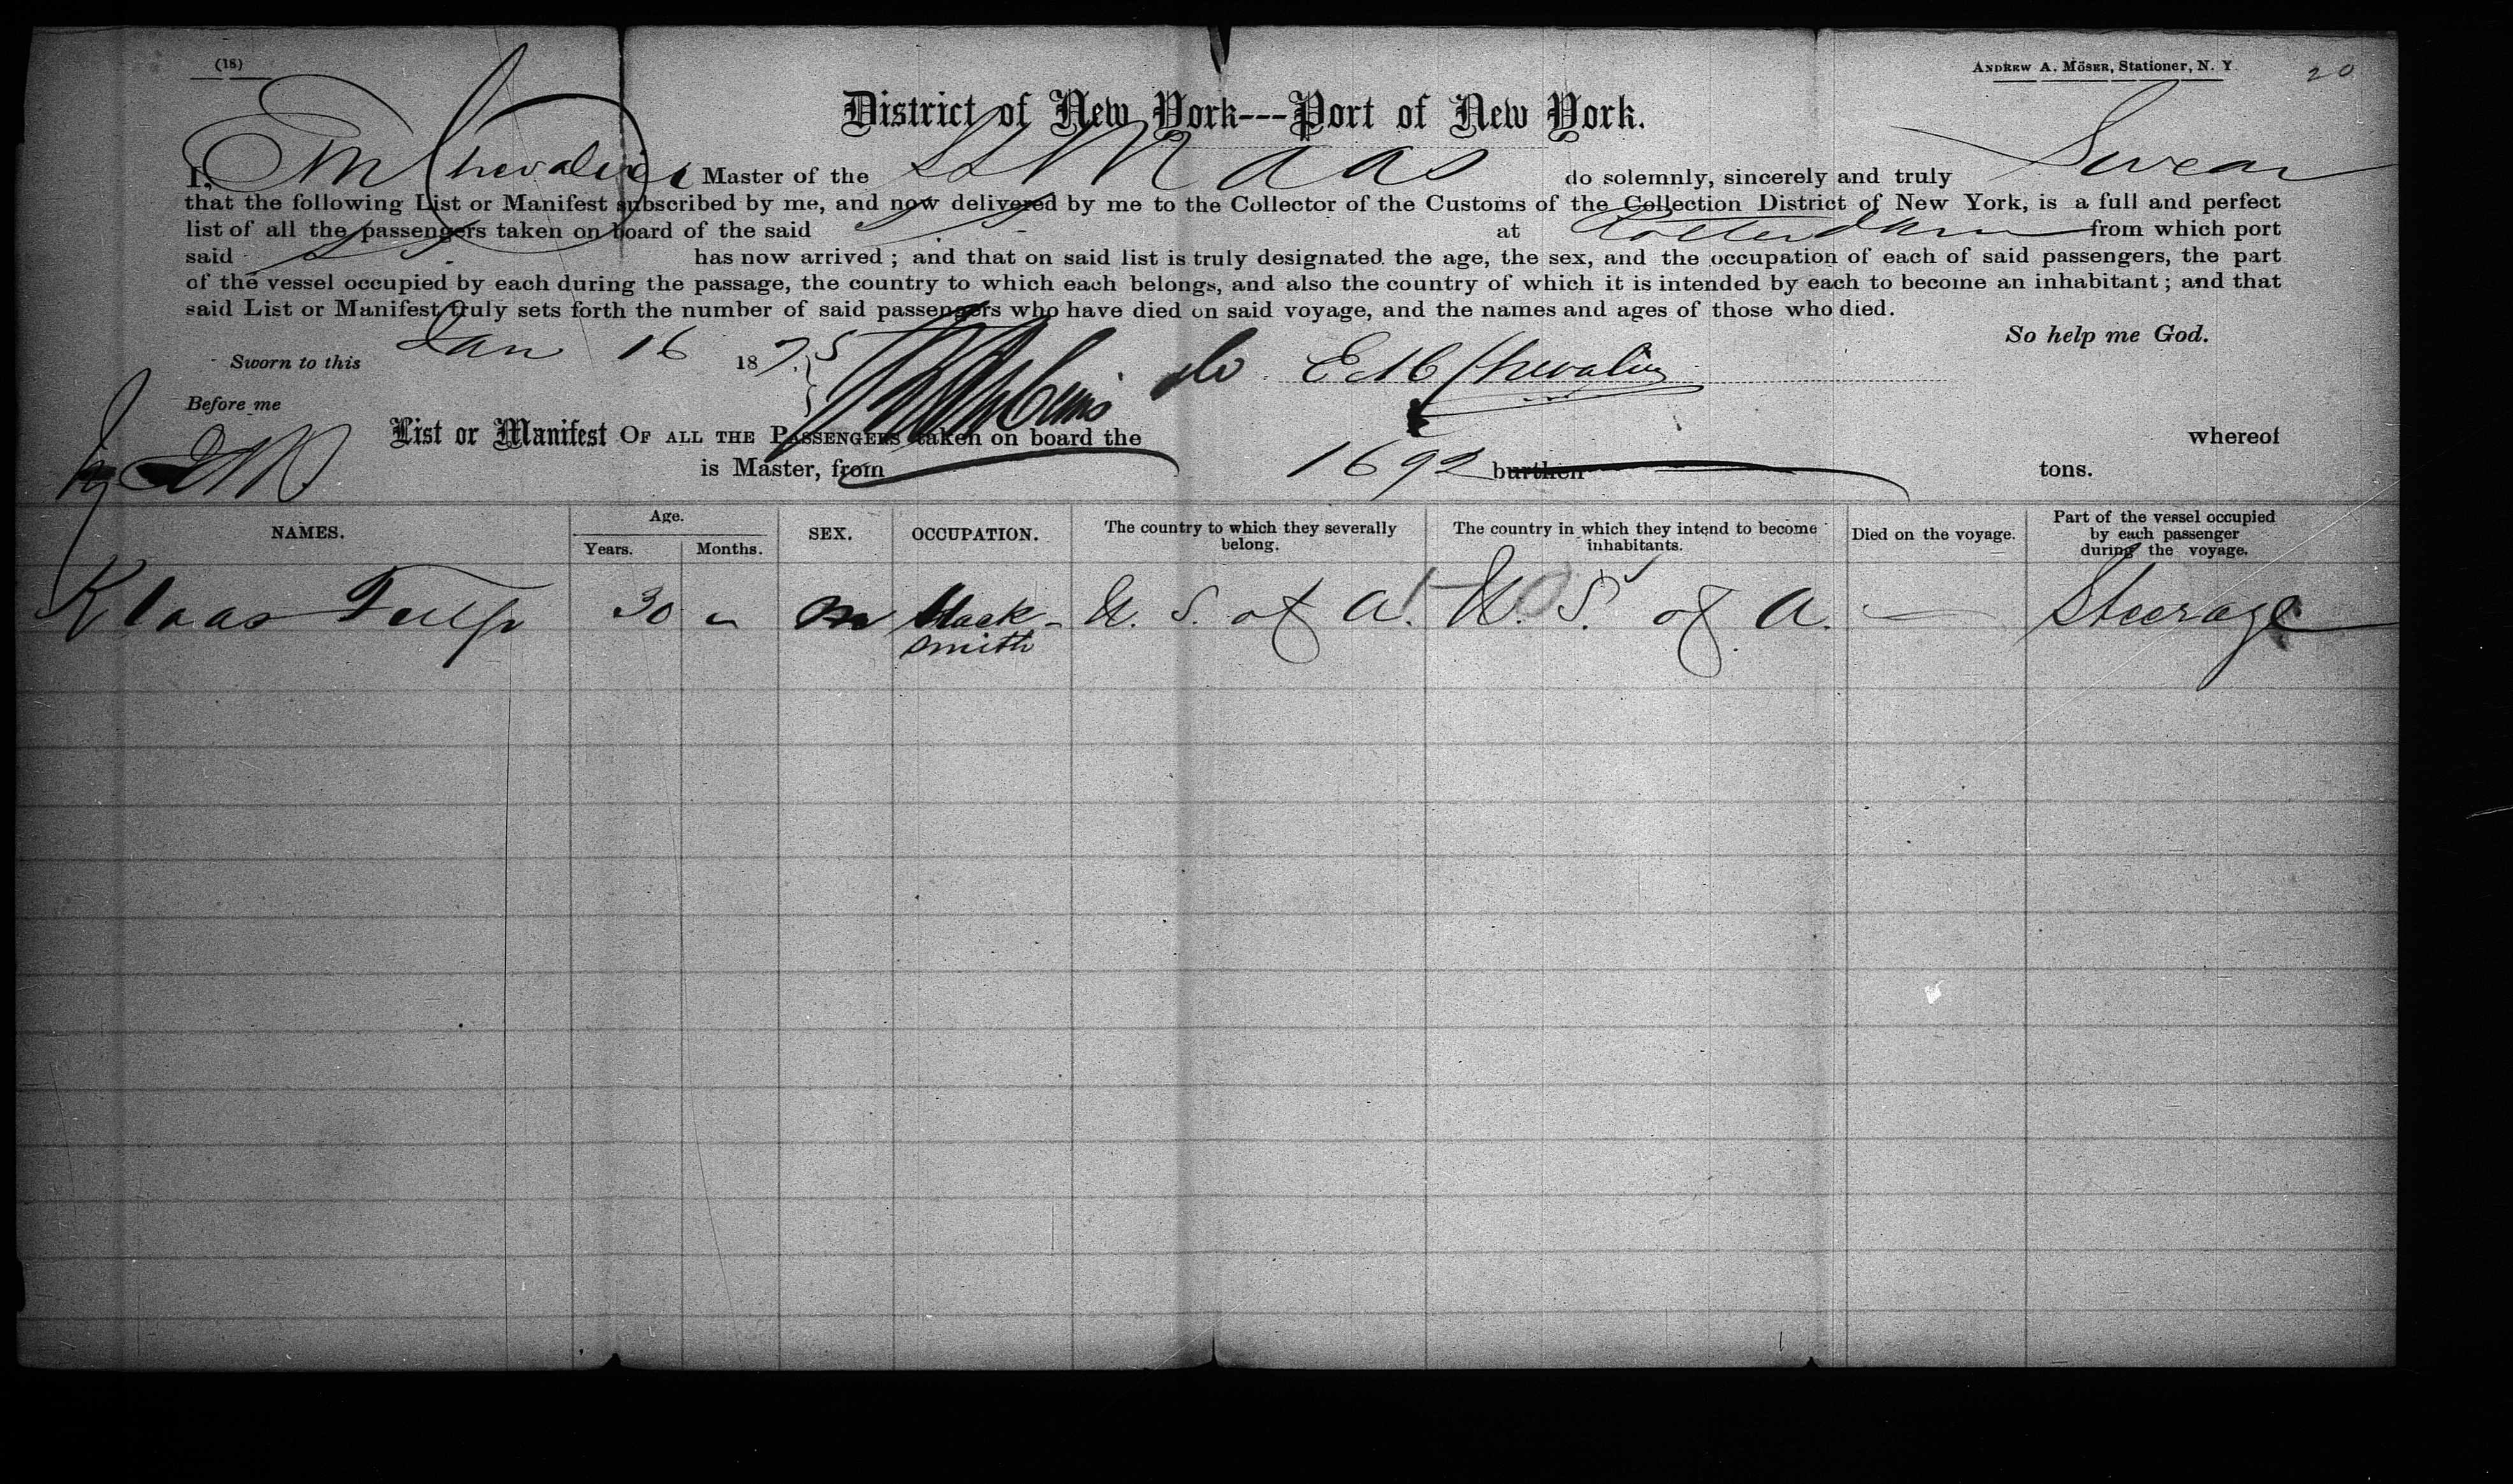 (18)
ANDREW A. MÖSER, Stationer, N. Y.
20
District of New York---Port of New York.
I, E M Chevalier Master of the SS Maas do solemnly, sincerely and truly Swear
that the following List or Manifest subscribed by me, and now delivered by me to the Collector of the Customs of the Collection District of New York, is a full and perfect
list of all the passengers taken on board of the said SS. at Rotterdam from which port
said SS. has now arrived; and that on said list is truly designated the age, the sex, and the occupation of each of said passengers, the part
of the vessel occupied by each during the passage, the country to which each belongs, and also the country of which it is intended by each to become an inhabitant; and that
said List or Manifest truly sets forth the number of said passengers who have died on said voyage, and the names and ages of those who died.
So help me God.
Sworn to this Jan 16 1875 Chevalier
Before me
List or Manifest OF ALL THE PASSENGERS taken on board the whereof
is Master, from 1692 burthen tons.
NAMES. Age. Years. Months. SEX. OCCUPATION. The country to which they severally belong. The country in which they intend to become inhabitants. Died on the voyage. Part of the vessel occupied by each passenger during the voyage.
Klaas 30 m black- U. S. of A. U. S. of A. — Steerage
smith